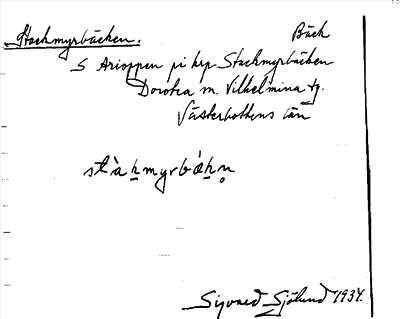 Stackmyrbäcken. Bäck
S Arioppen på krp Stackmyrbäcken
Dorotea m. Vilhelmina tg.
Västerbottens län
stàḵmyrbǽḵn̥
Sigvard Sjölund 1934.